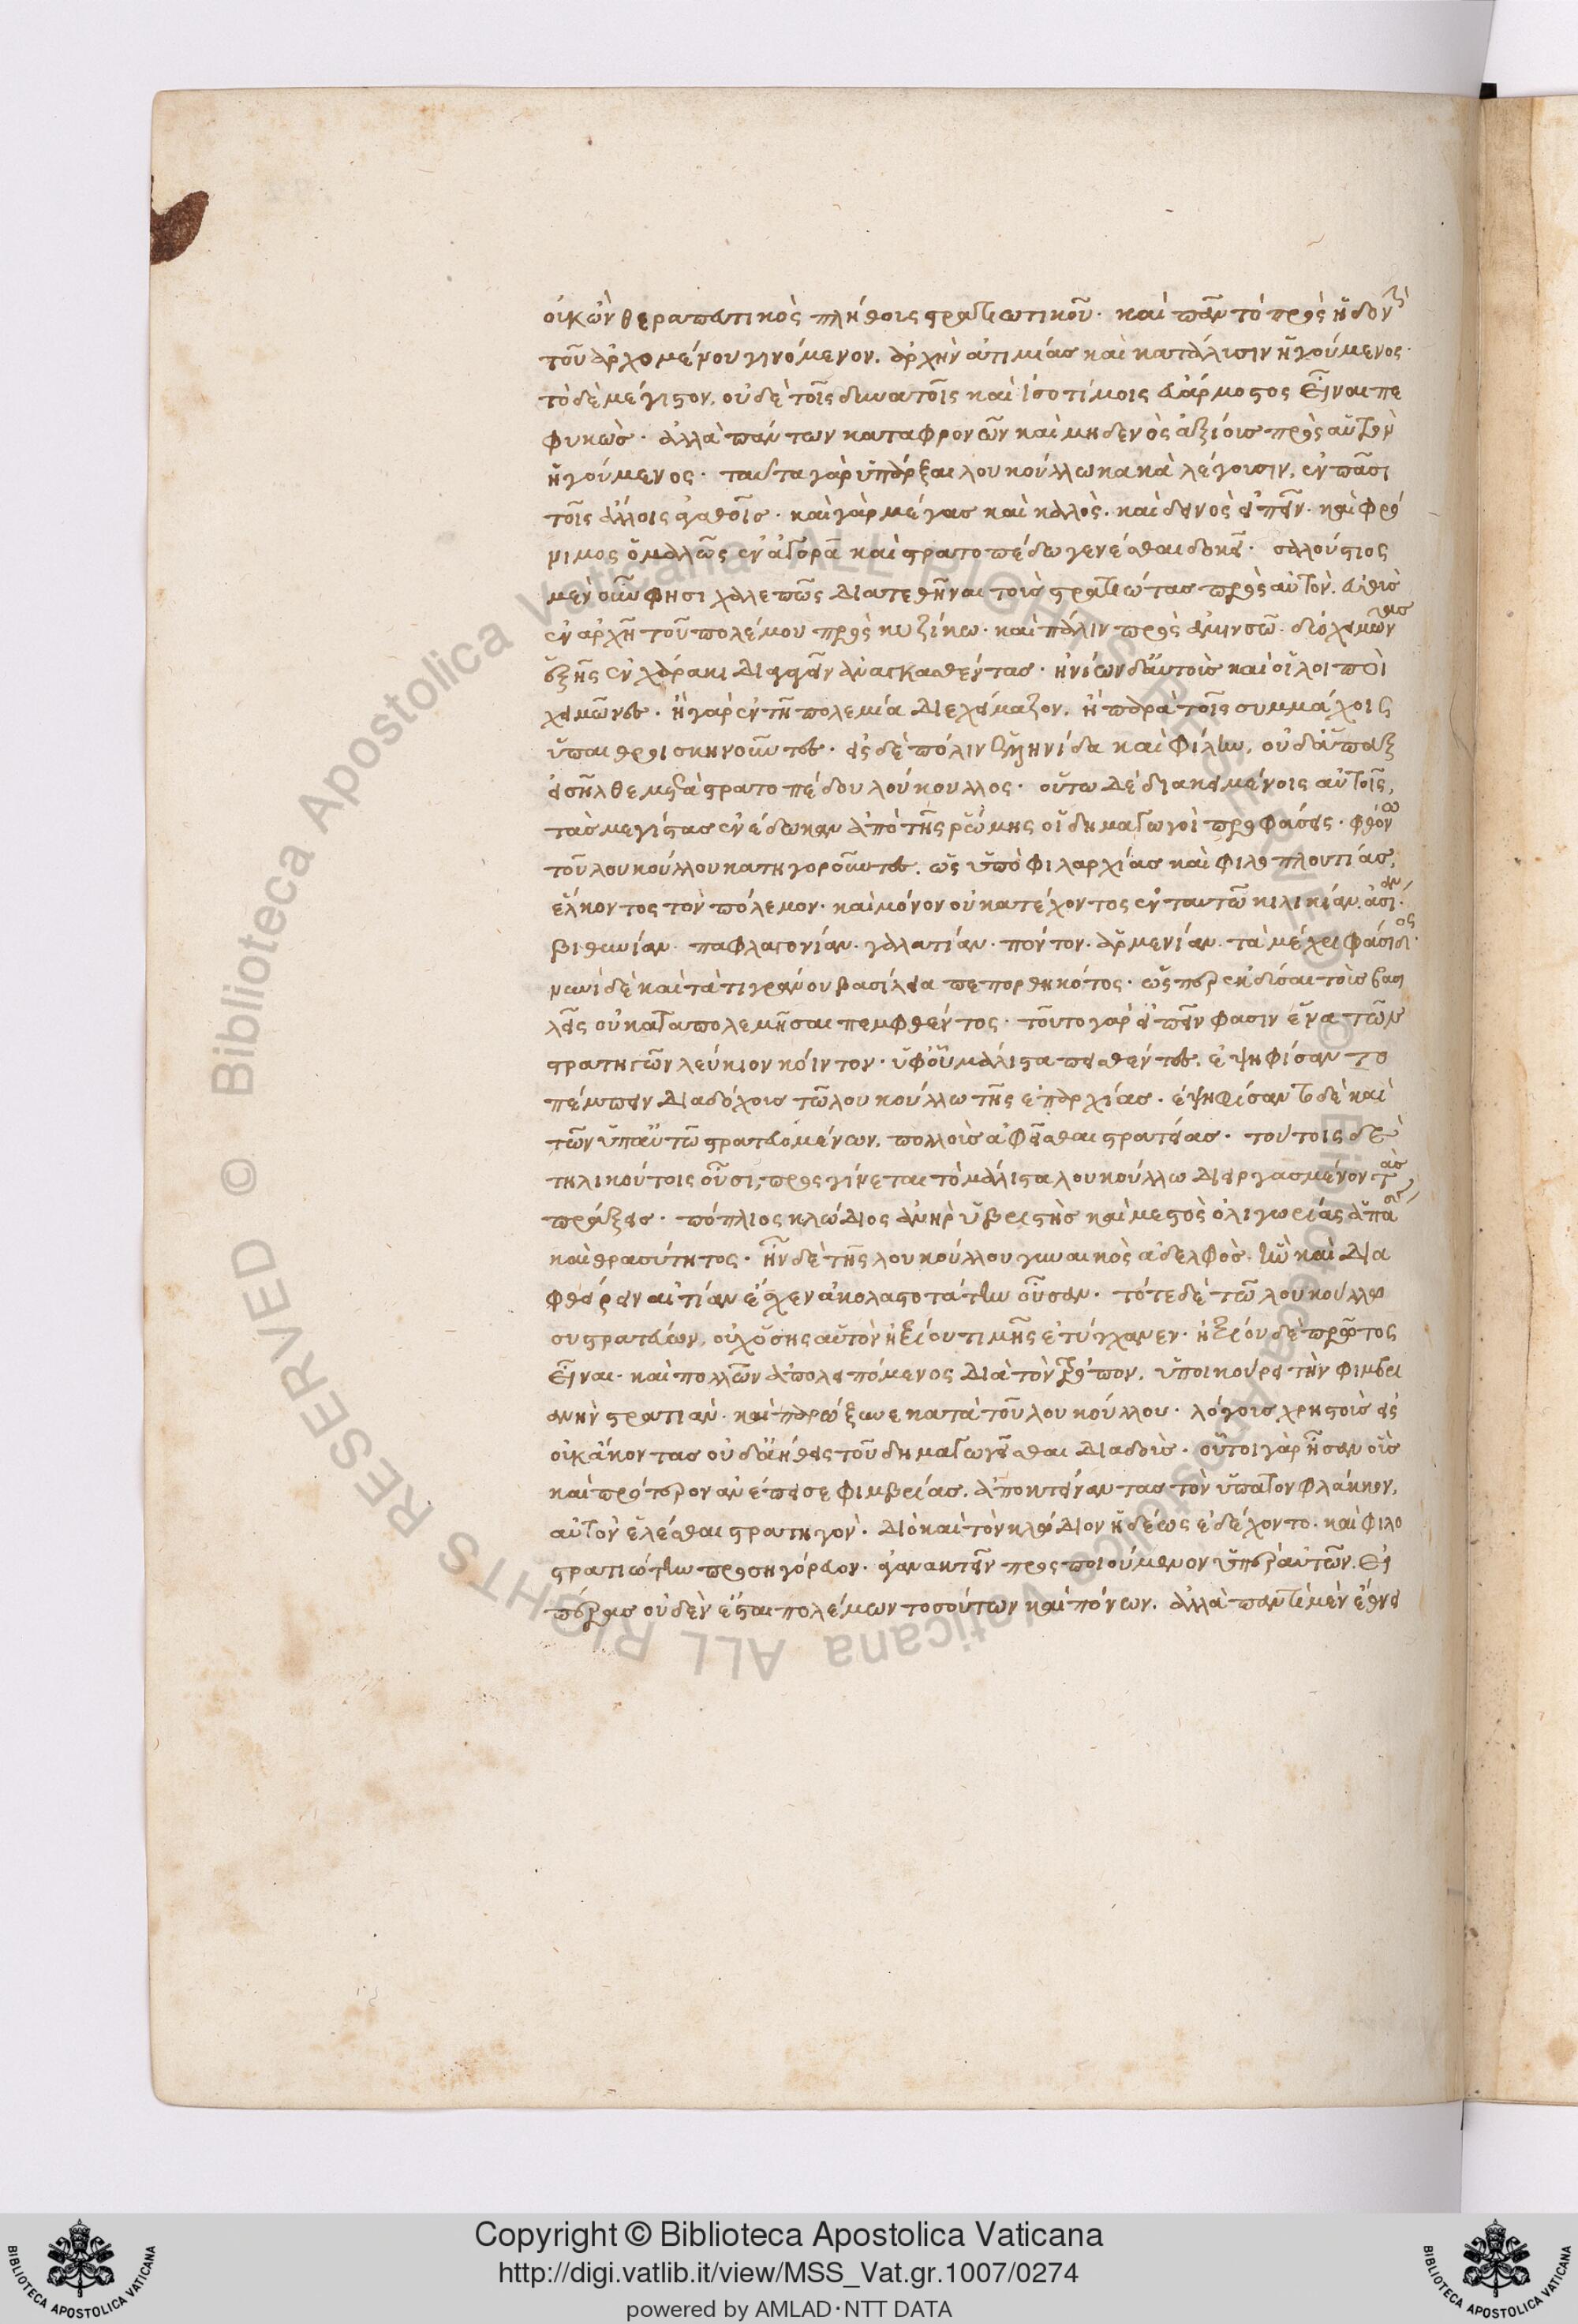 οὐκ ὢν θεραπευτικὸς πλήθους στρατιωτικοῦ· καὶ πᾶν τὸ πρὸς ἡδονὴν
τοῦ ἀρχομένου γινόμενον, ἀρχὴν ἀτιμίας καὶ κατάλυσιν ἡγούμενος·
τὸ δὲ μέγιστον, οὐδὲ τοῖς δυνατοῖς καὶ ἰσοτίμοις εὐάρμοστος εἶναι πε
φυκὼς· ἀλλὰ πάντων καταφρονῶν καὶ μηδενὸς ἀξίους πρὸς αὑτὸν
ἡγούμενος· ταῦτα γὰρ ὑπάρξαι λουκούλλω κακὰ λέγουσιν, ἐν πᾶσι
τοῖς ἄλλοις ἀγαθοῖς· καὶ γὰρ μέγας καὶ καλὸς· καὶ δεινὸς εἰπεῖν· καὶ φρό
νιμος ὁμαλῶς ἐν ἀγορᾶ καὶ στρατοπέδω γενέσθαι δοκεῖ· σαλούστιος
μὲν οὖν φησι χαλεπῶς διατεθῆναι τοὺς στρατιώτας πρὸς αὐτὸν, εὐθὺς
ἐν ἀρχῆ τοῦ πολέμου πρὸς κυζίκω· καὶ πάλιν πρὸς ἀμινσῶ· δύο χειμῶνας
ἑξῆς ἐν χάρακι διαγαγεῖν ἀναγκασθέντας· ἠνίων δ' αὐτοὺς καὶ οἱ λοιποὶ
χειμῶνες· ἢ γὰρ ἐν τῆ πολεμία διεχείμαζον, ἢ παρὰ τοῖς συμμάχοις
ὕπαιθροι σκηνοῦντες· εἰς δὲ πόλιν ἑλληνίδα καὶ φίλην, οὐδ' ἅπαξ
εἰσῆλθε μετὰ στρατοπέδου λούκουλλος· οὕτω δὲ διακειμένοις αὐτοῖς,
τὰς μεγίστας ἐνέδωκαν ἀπὸ τῆς ῥώμης οἱ δημαγωγοὶ προφάσεις· φθόνω
τοῦ λουκούλλου κατηγοροῦντες, ὡς ὑπὸ φιλαρχίας καὶ φιλοπλουτίας,
ἕλκοντος τὸν πόλεμον· καὶ μόνον οὐ κατέχοντος ἐν ταυτῶ κιλικίαν, ἀσίαν·
βιθυνίαν· παφλαγονίαν· γαλατίαν· πόντον· ἀρμενίαν· τὰ μέχρι φάσιδος·
νυνὶ δὲ καὶ τὰ τιγράνου βασίλεια πεπορθηκότος· ὥσπερ ἐκδῦσαι τοὺς βασι
λεῖς οὐ καταπολεμῆσαι πεμφθέντος· τοῦτο γὰρ εἰπεῖν φασιν ἕνα τῶν
στρατηγῶν λεύκιον κόιντον· ὑφ' οὗ μάλιστα πεισθέντες, ἐψηφίσαντο
πέμπειν διαδόχους τῶ λουκούλλω τῆς ἐπαρχίας· ἐψηφίσαντο δὲ καὶ
τῶν ὑπ' αὐτῶ στρατευομένων, πολλοὺς ἀφεῖσθαι στρατείας· τούτοις δὲ
τηλικούτοις οὖσι, προσγίνεται τὸ μάλιστα λουκούλλω διειργασμένον τὰς
πράξεις· πόπλιος κλώδιος ἀνὴρ ὑβριστὴς καὶ μεστὸς ὀλιγωρίας ἁπάσης
καὶ θρασύτητος· ἦν δὲ τῆς λουκούλλου γυναικὸς ἀδελφὸς· ἣν καὶ δια
φθείρειν αἰτίαν ἔσχεν ἀκολαστοτάτην οὖσαν· τότε δὲ τῶ λουκούλλω
συστρατεύων, οὐχ ὅσης αὑτὸν ἠξίου τιμῆς ἐτύγχανεν· ἠξίου δὲ πρῶτος
εἶναι· καὶ πολλῶν ἀπολειπόμενος διὰ τὸν τρόπον, ὑποικούρει τὴν φιμβρι
ανὴν στρατιὰν· καὶ παρώξυνε κατὰ τοῦ λουκούλλου· λόγους χρηστοὺς εἰς
οὐκ ἄκοντας οὐδ' ἀήθεις τοῦ δημαγωγεῖσθαι διαδοὺς· οὗτοι γὰρ ἦσαν οὓς
καὶ πρότερον ἀνέπεισε φιμβρίας, ἀποκτείναντας τὸν ὕπατον φλάκκον,
αὐτὸν ἑλέσθαι στρατηγὸν· διὸ καὶ τὸν κλώδιον ἡδέως ἐδέχοντο· καὶ φιλο
στρατιώτην προσηγόρευον· ἀγανακτεῖν προσποιούμενον ὑπὲρ αὐτῶν. εἰ
πέρας οὐδὲν ἔσται πολέμων τοσούτων καὶ πόνων. ἀλλὰ παντὶ μὲν ἔθνει
Biblioteca Apostolica Vaticana ALL RIGHTS RESERVED ©
Copyright © Biblioteca Apostolica Vaticana
http://digi.vatlib.it/view/MSS_Vat.gr.1007/0274
powered by AMLAD·NTT DATA
BIBLIOTECA APOSTOLICA VATICANA
BIBLIOTECA APOSTOLICA VATICANA